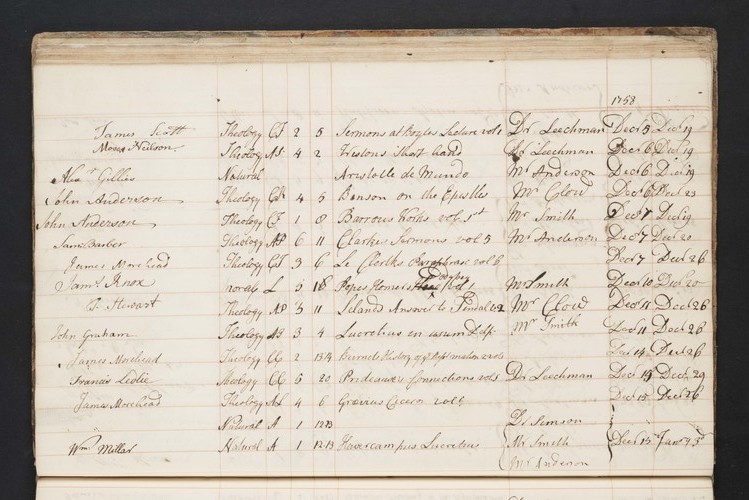 1758
James Scott Theology CI 2 5 Sermons at Boyles Lecture vol 1 Dr Leechman Decr 5 Decr 19
Moses Neilson Theology AS 4 2 short hand Dr Leechman Decr 6 Decr 19
Alexr Gillies Natural Aristotle de Mundo Mr Anderson Decr 6 Decr 19
John Anderson Theology 4 5 Benson on the Epistles Mr Clow Decr 6 Decr 23
John Anderson Theology CI 1 8 Barrows Works vol 1st Mr Smith Decr 7 Decr 19
Saml Barber Theology AP 6 11 Clarkes Sermons vol 5 Mr Anderson Decr 7 Decr 20
James Morehead Theology CI 3 6 Le Clerks Paraphrase vol 6 Decr 7 Decr 26
Odyssey
Saml Knox L 5 18 Popes Homers vol 1 Mr Smith Decr 10 Decr 20
P. Stewart Theology AP 3 11 Lelands Answer to Tindal v 2 Mr Clow Decr 11 Decr 26
John Graham Theology AS 3 4 Lucretius in usum Delp: Mr Smith Decr 11 Decr 26
James Morehead Theology CG 2 Burnets History of ye Reformation 2 vols Decr 14 Decr 26
Francis Leslie Theology CC 5 20 Prideauxs Connections vol 1 Dr Leechman Decr 14 Decr 29
James Morehead Theology 4 6 Grævius Cicero vol 5 Decr 15 Decr 26
Natural A 1 1273 Dr Simson
Wm Millar Natural A 1 1213 Havercampus Lucretius Mr Smith Decr 15 Janr 3d
Mr Anderson